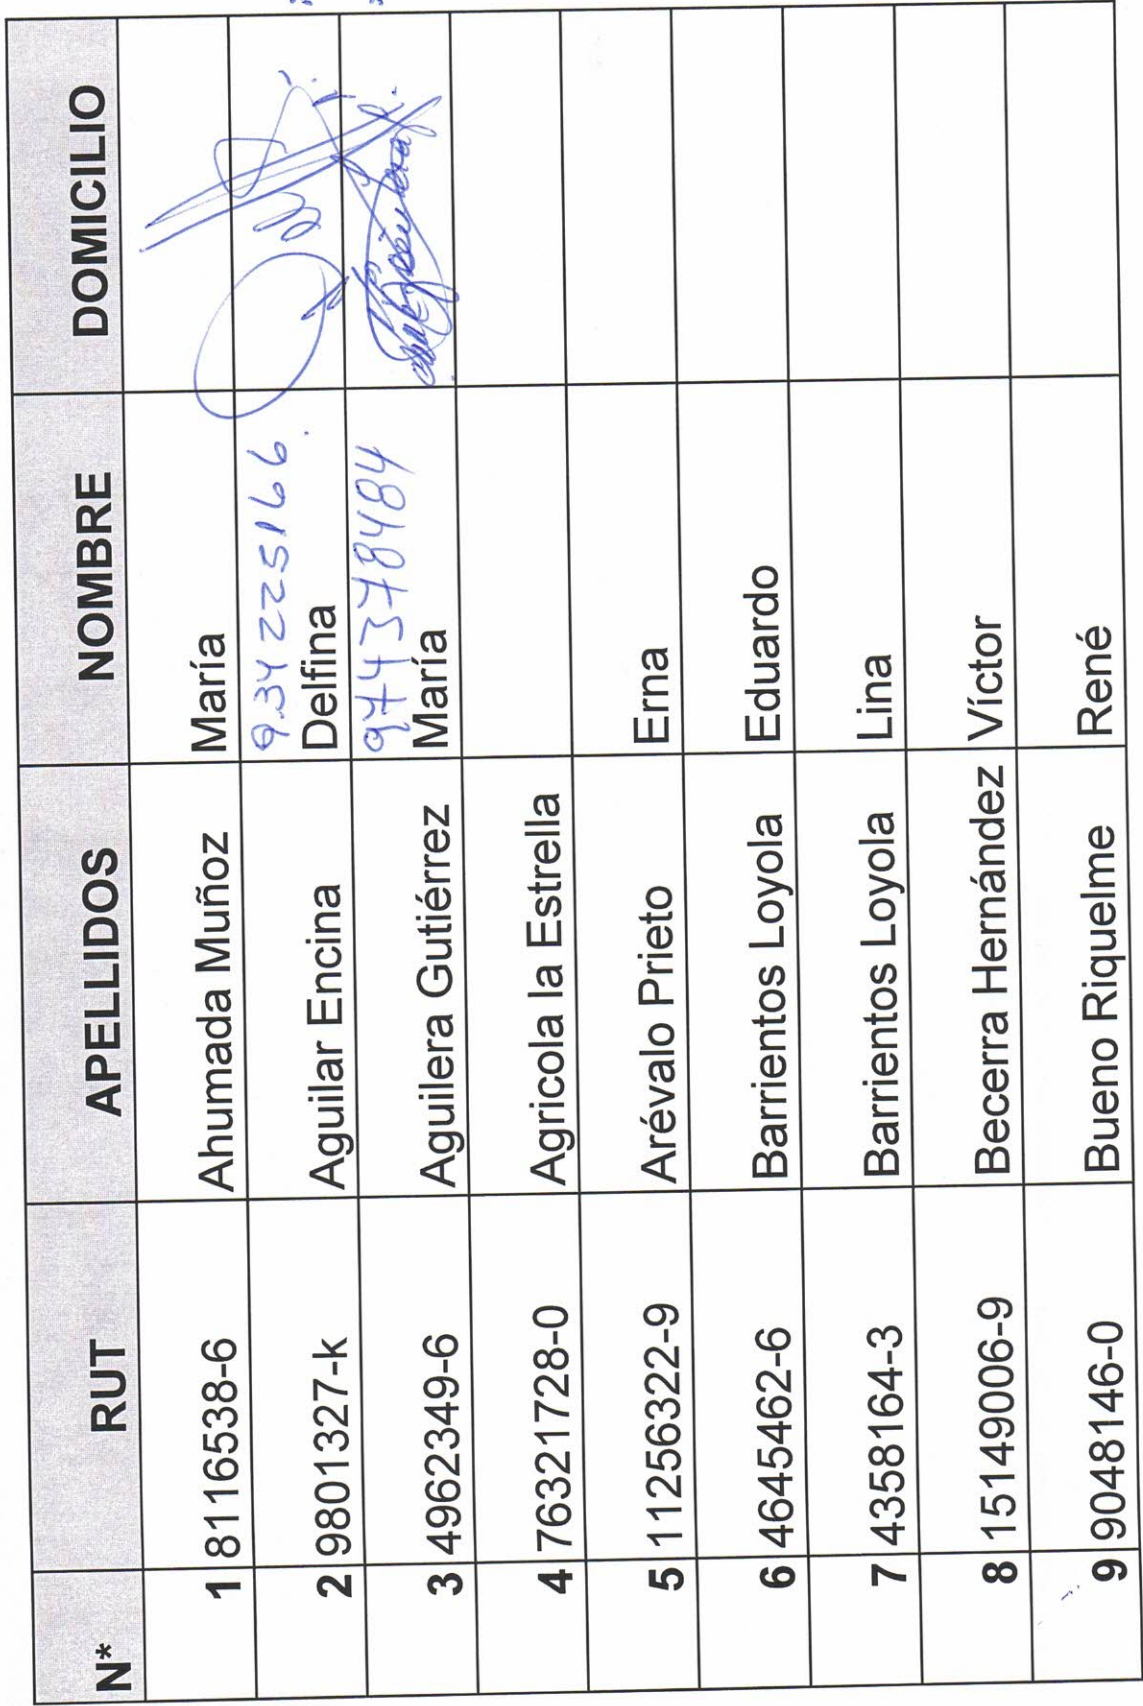 N* RUT APELLIDOS NOMBRE DOMICILIO
1 8116538-6 Ahumada Muñoz María
9.34225166.
2 9801327-k Aguilar Encina Delfina
974378484
3 4962349-6 Aguilera Gutiérrez María
4 76321728-0 Agricola la Estrella
5 11256322-9 Arévalo Prieto Erna
6 4645462-6 Barrientos Loyola Eduardo
7 4358164-3 Barrientos Loyola Lina
8 15149006-9 Becerra Hernández Víctor
9 9048146-0 Bueno Riquelme René